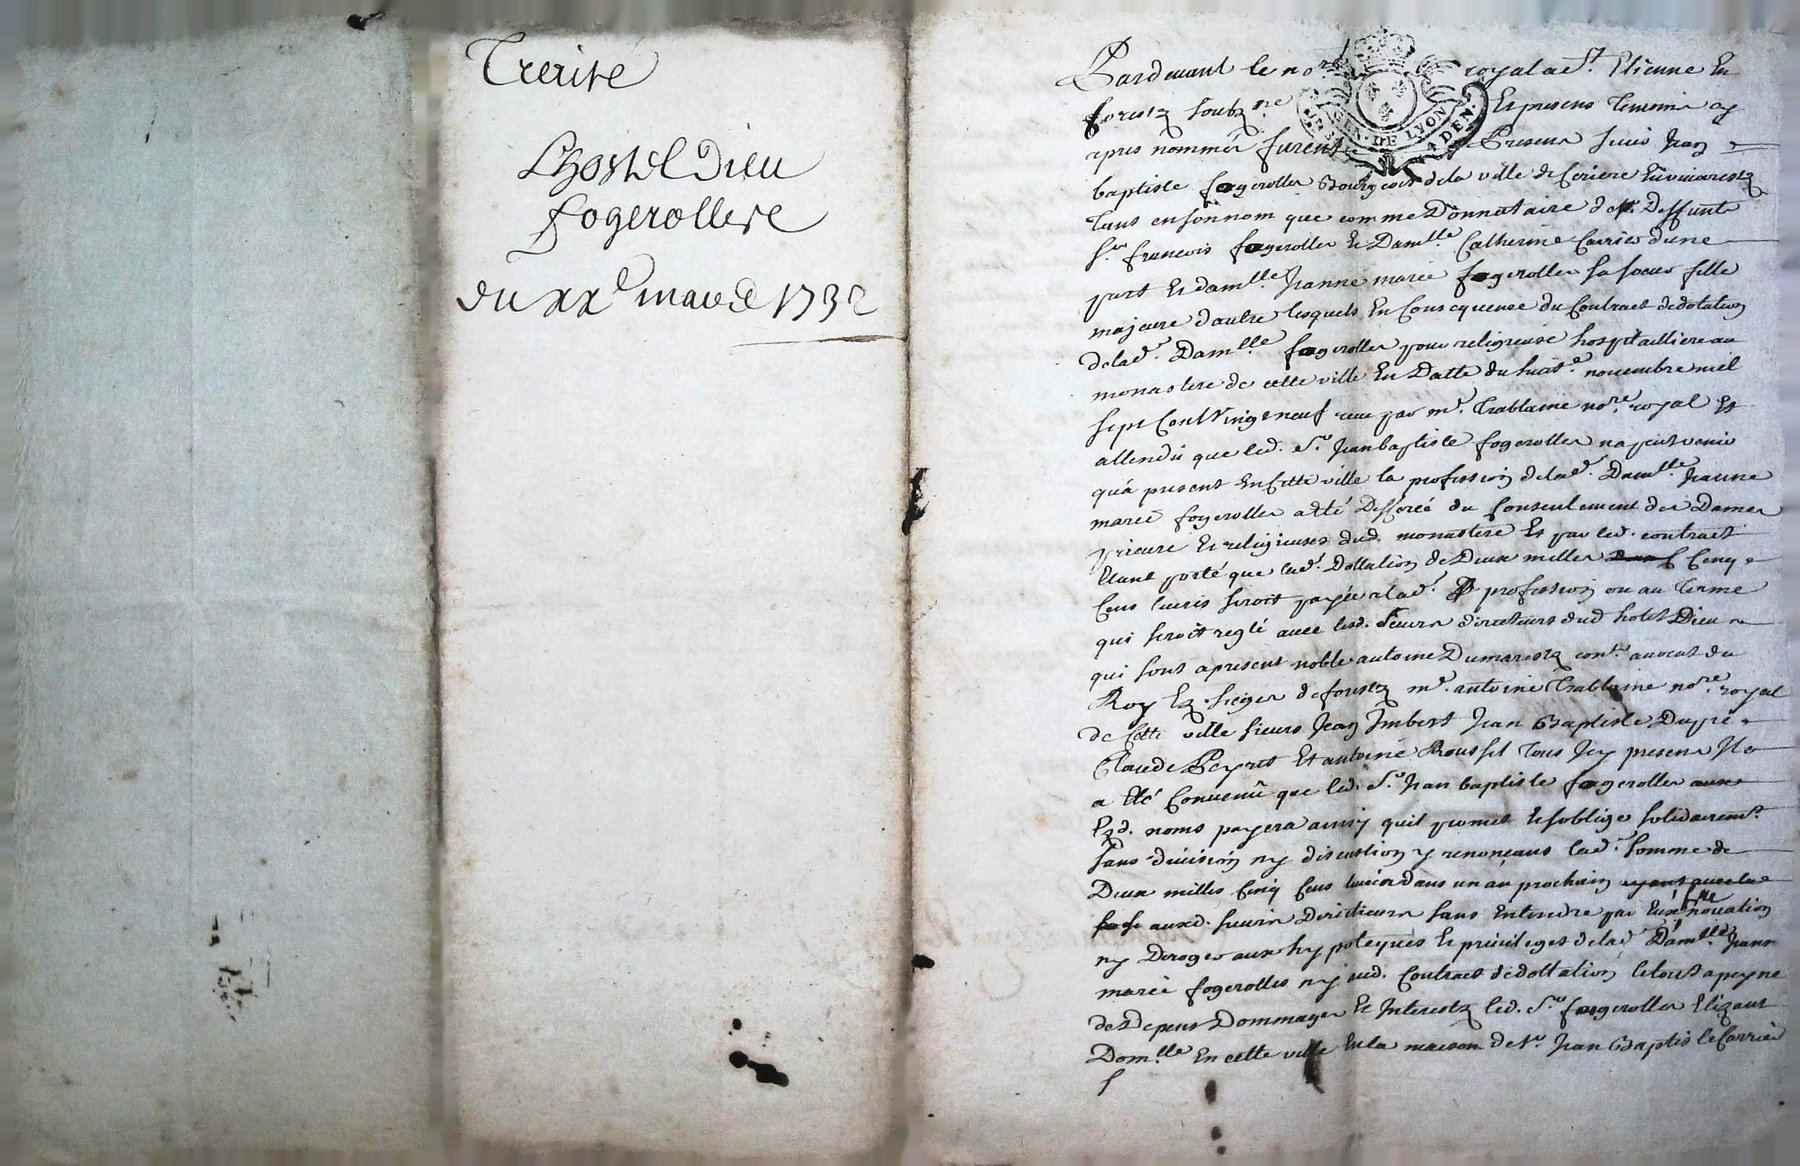 Traité
Lhostel Dieu
fogerolles
du xx.e mars 1732
GEN. DE LYON
Pardevant le no.re royal a St. Etienne En
forestz soubz.né Et presens temoins cy
apres nommés furent Presens sieur Jean
baptiste fogerolles Bourgeois de la ville de en vivarestz
tant en son nom que comme Donnataire de Deffunts
Sr. francois fogerolles et Dam.lle Catherine Carrier dune
part et dam.lle Jeanne marie fogerolles sa soeur fille
majeure d'autre lesquels En Consequense du Contract de dotation
de lad. Dam.lle fogerolles pour religieuse hospitalliere au
monastere de cette ville En Datte du huit novembre mil
sept Cent Vingt neuf receu par me. Trablaine no.re royal Et
attendu que led. Sr. Jean baptiste fogerolles na peut venir
qu'a present En Cette ville la profession de lad. Dam.lle Jeanne
marie fogerolles a eté Differée du Consentement des Dames
prieure et religieuses dud. monastere Et par led. contract
Etant porté que lad. Dottation de Deux milles Cinq
Cens livres seroit payée a lad. profession ou au Terme
qui seroit reglé avec lesd. sieurs directeurs dud hotel Dieu
qui sont a present noble antoine Dumarestz con.er avocat du
Roy Ez sieges de forestz me. antoine Trablaine no.re royal
de Cette ville sieurs Jean Imbert Jean Baptiste Dupré
Claude Peyret Et antoine Roussel tous Icy presens Il
a Eté Convenû que led. Sr. Jean baptiste fogerolles aux
Ezd. noms payera ainsy quil promet et soblige solidairem.t
sans division ny discustion y renonçans lad. somme de
Deux milles Cinq Cens livres dans un an prochain
auxd. sieurs Directeurs sans Entendre par Eux novation
ny Deroger aux hypoteques et privileges de lad Dam.lle Jeanne
marie fogerolles ny aud. Contract de dottation le tout a peyne
de Depens Dommages Et Interestz led. Sr. fogerolles Elizant
Dom.lle En cette ville En la maison de Sr. Jean Baptiste Carrier